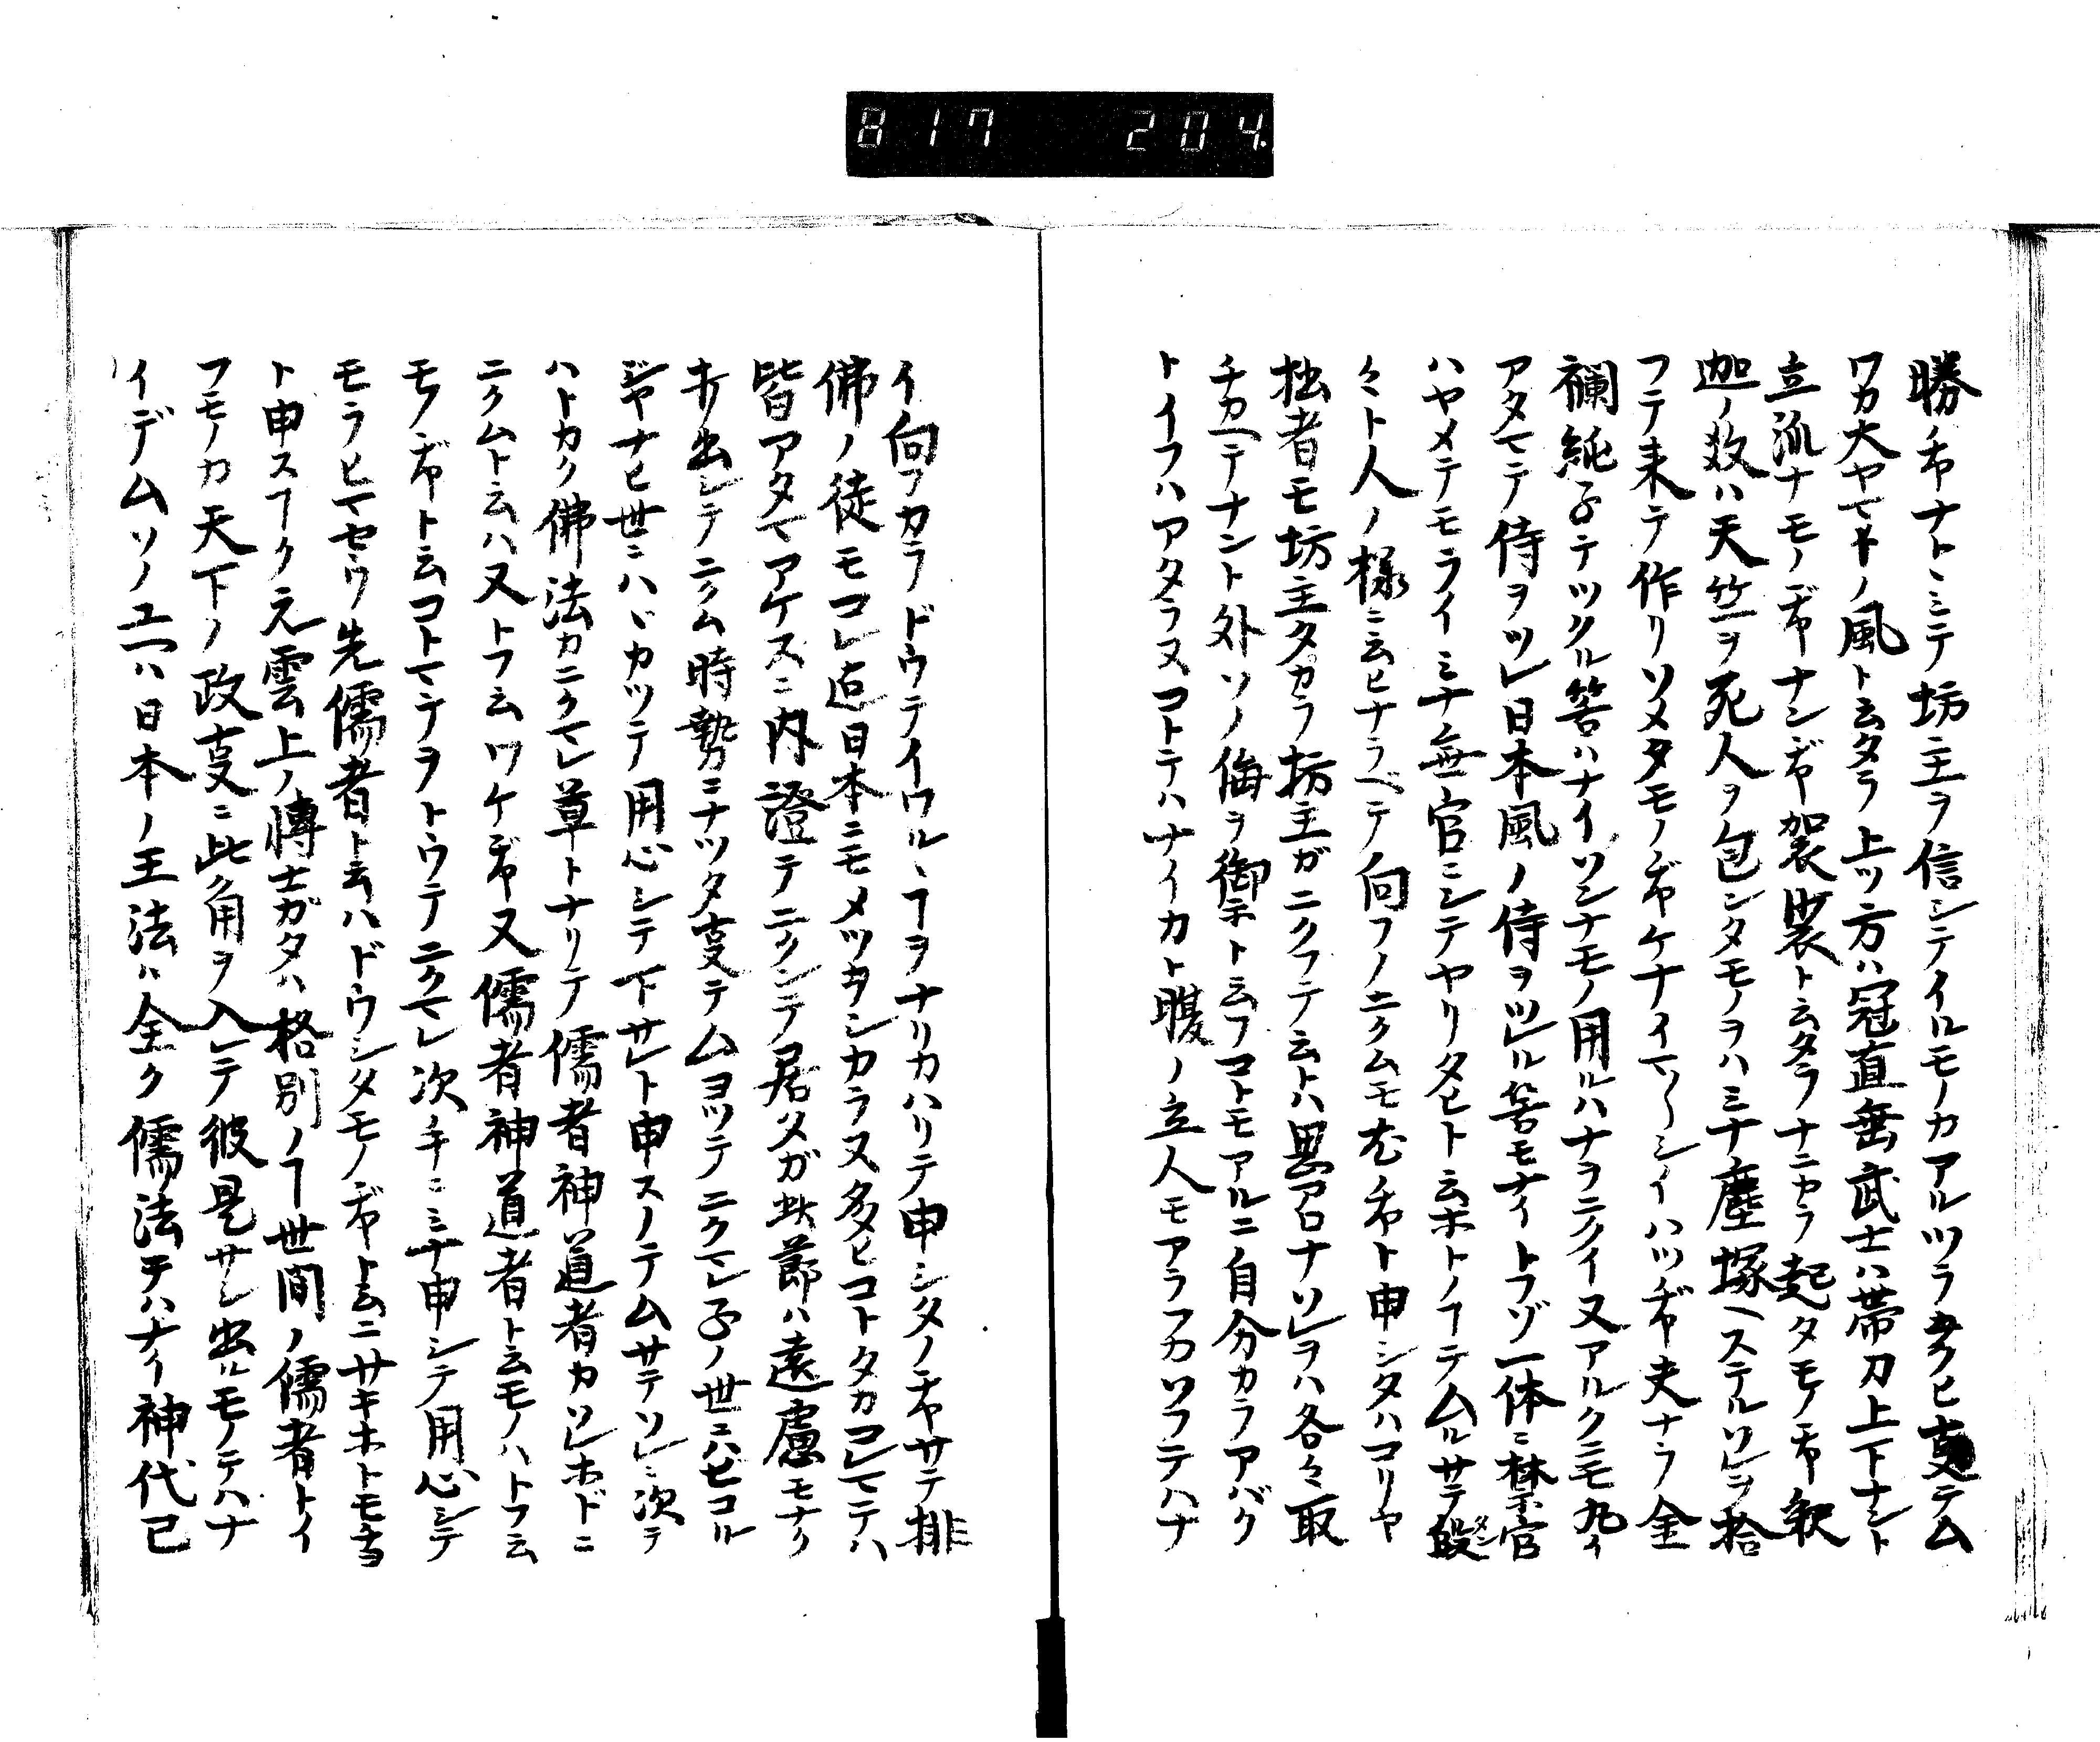 817 204
勝チヤナトヽミテ坊主ヲ信シテイルモノカアルツラカラヒ
ワカ大ヤマトノ風ト云タラ上ツ方ハ冠直垂武士ハ帯刀上下ナント
立派ナモノヂヤナンヂヤ袈裟ト云タラナニカラ起タモノチヤ釈
迦ノ教ハ天竺ヲ死人ヲ包ンタモノヲハミナ塵塚ヘステルソレヲ拾
フテ来テ作リソメタモノヂヤケナイマ
襴純子テツクル筈ハナイソンナモノ用ルハナヲニクイ又アルクニモ丸イ
アタマテ侍ヲツレ日本風ノ侍ヲツレル筈モナイトフゾ一体ニ禁官
ハヤメテモライミナ無官ニシテヤリタヒト云ホトノヿテムルサテ段
々ト人ノ様ニ云ヒナラベテ向フノニクムモ尤チヤト申シタハコリヤ
拙者モ坊主タカラ坊主ガニクフテ云トハ思アロナソレヲハ各々取
チカヘテナント外ソノ侮ヲ御ト云フコトモアルニ自分カラアバク
トイフハアタラヌコトテハナイカト腹ノ立人モアラフカソフテハナ
イ向フカラドウテイワルヽヿヲナリカハリテ申シタノチヤサテ排
佛ノ徒モコレ迄日本ニモメツタシカラヌ多ヒコトタカコレマテハ
皆アタマアケスニ内證テニクンテ居タメガ此節ハ遠慮モナク
ホリ出シテニクム時勢ニナツタ事テムヨツテニクマレ子ノ世ニハヒコル
ジヤナヒ世ニハヾカツテ用心シテ下サレト申スノテムサテソレニ次テ
ハトカク佛法カニクマレ草トナリテ儒者神道者カソレホドニ
ニクムト云ハ又トフ云ワケヂヤ又儒者神道者ト云モノハトフ云
モノヂヤト云コトマテヲトウテニクマレ次手ニミナ申シテ用心シテ
モラヒマセウ先儒者ト云ハドウシタモノヂヤト云ニサキホトモ
ト申スヿク元雲上ノ博士ガタハ格別ノヿ世間ノ儒者トイ
フモノカ天下ノ政事ニ此角ヲ入レテ彼是サシ出ルモノテハナ
イデムソノユヘハ日本ノ王法ハ全ク儒法テハナイ神代已